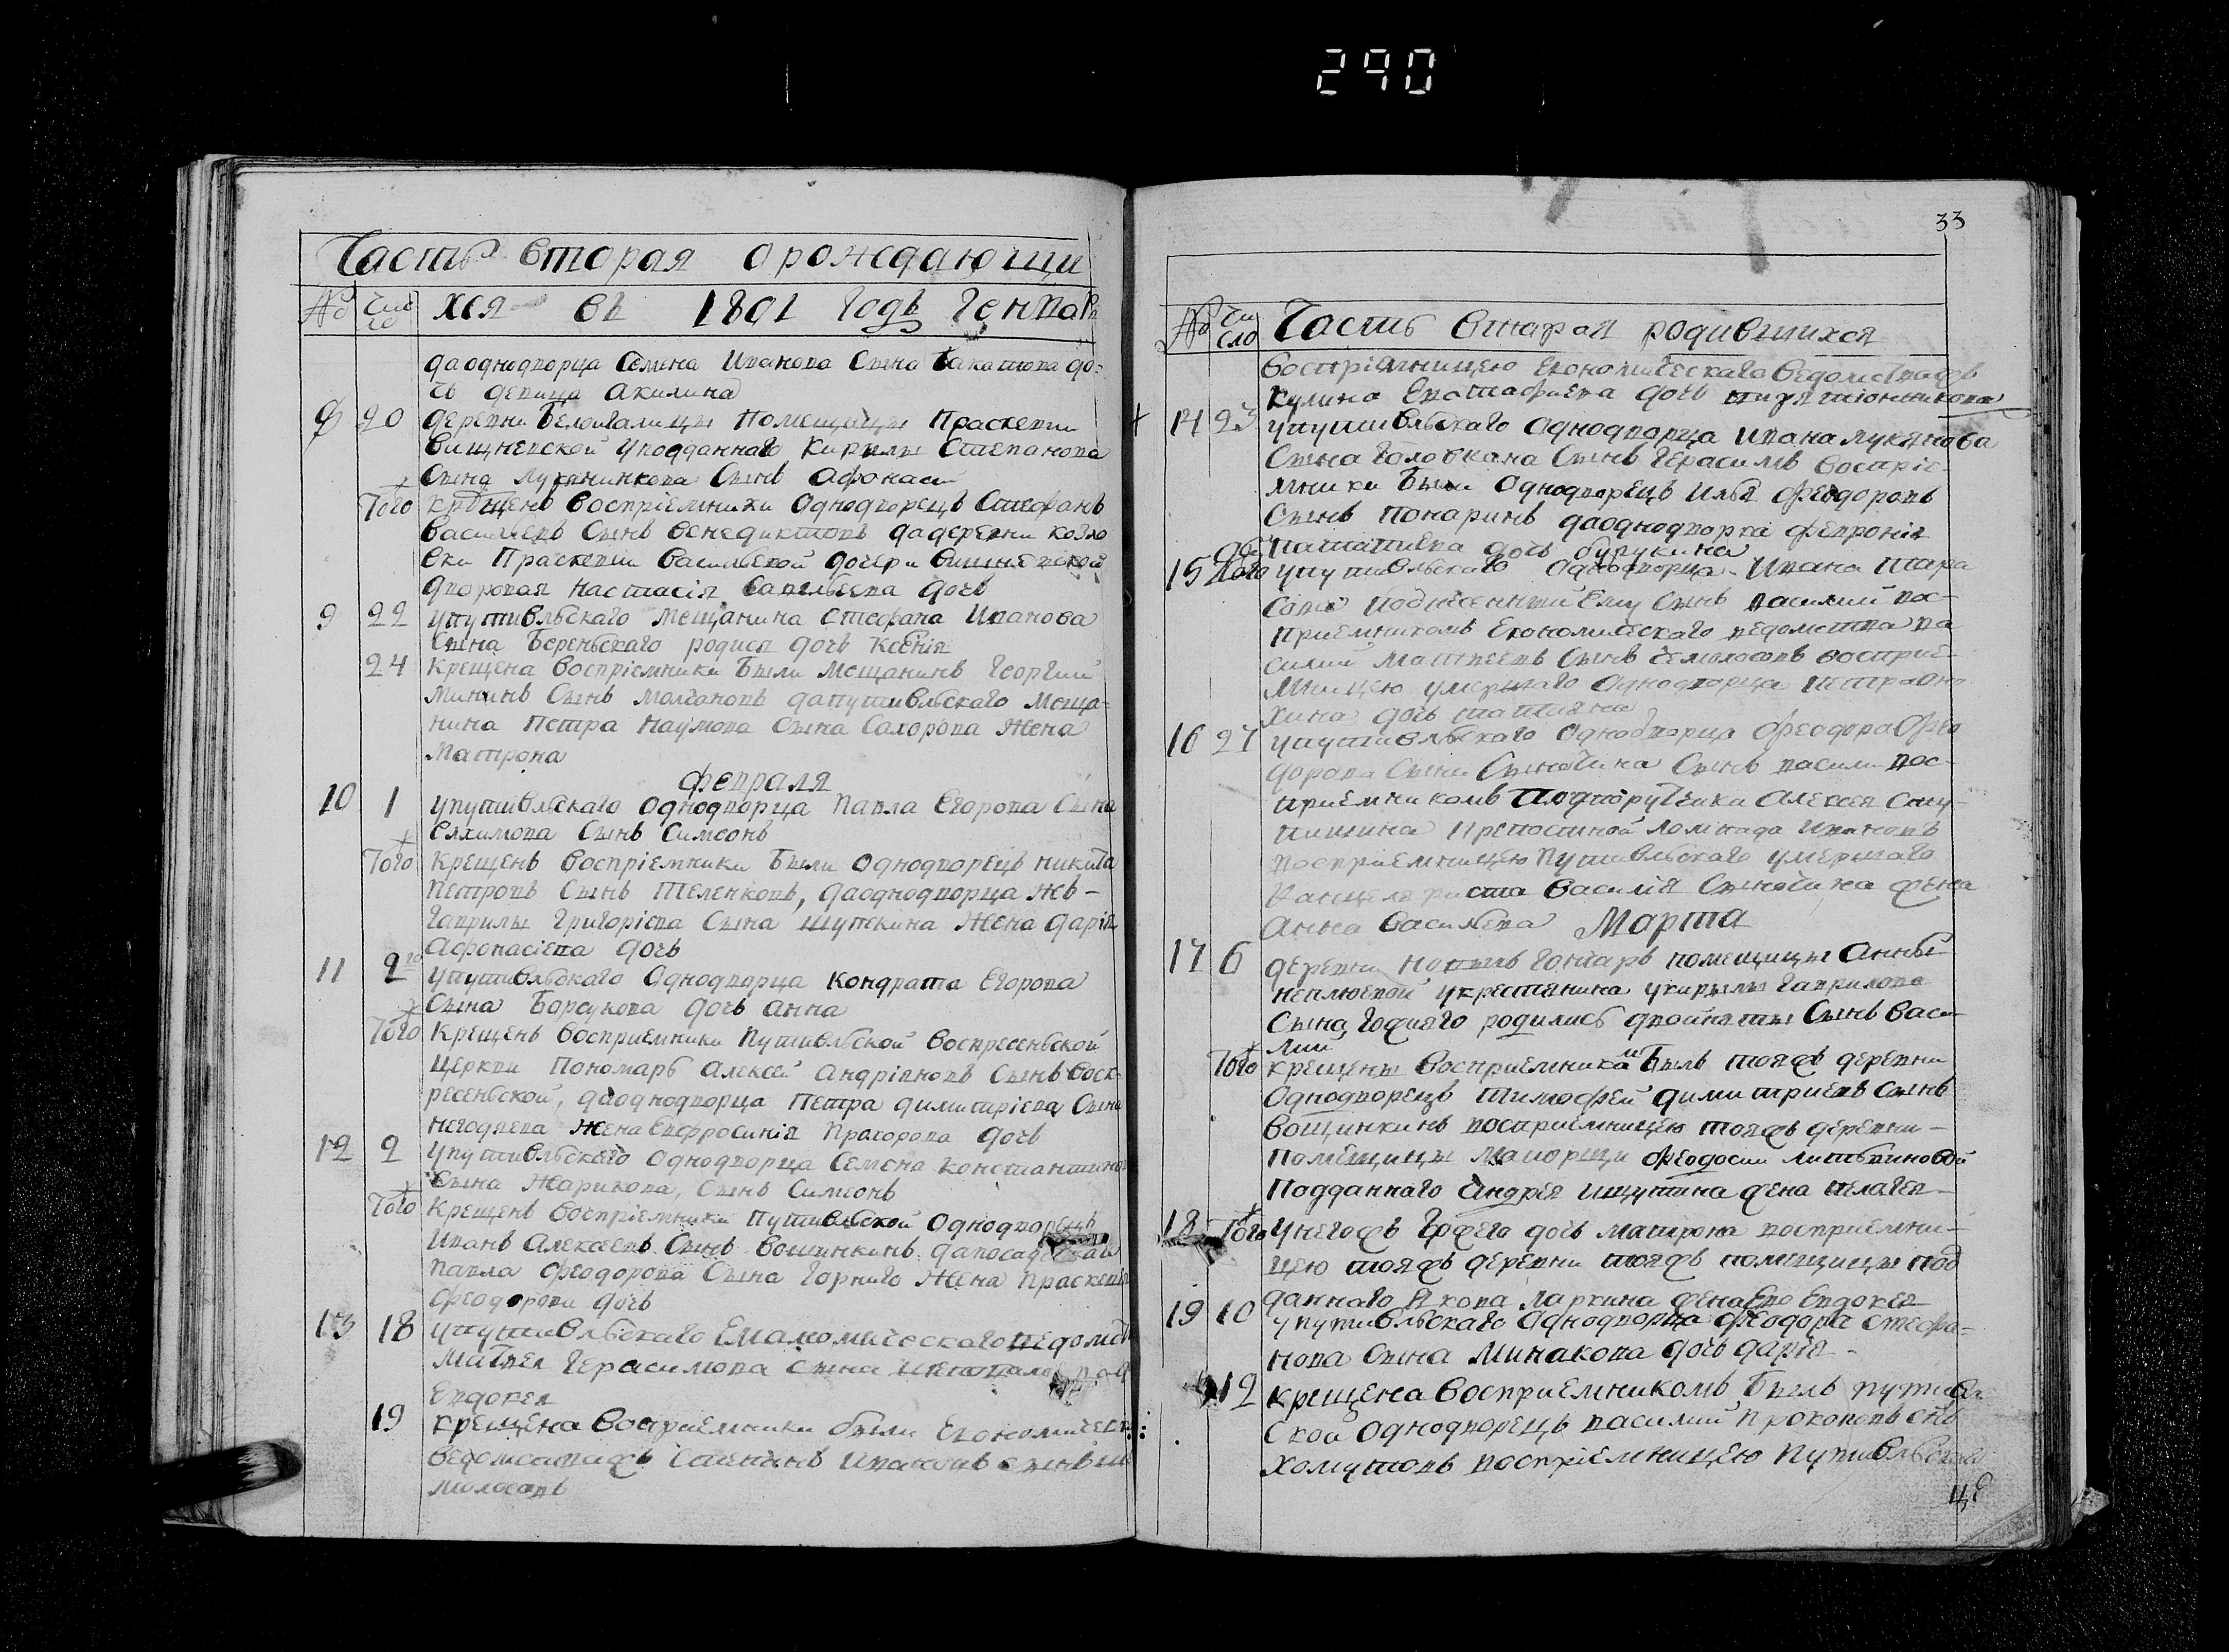 290
Часть вторая о рождающи
№ Число хся въ 1801 годъ Генвар
да однодворца Семена Иванова Сына до=
чь девица Акилина
8 20 деревни Белогалицы Помещицы Праскевии
Вишневской у подданнаго Кирилы Степанова
Сына Сынъ Афонаси
Того крещенъ восприемники Однодворецъ Стефанъ
Васильевъ Сынъ Венедиктовъ да деревни Козло
вки Праскевии Васильевой дочери Вишневской
дворовая Настасія Савельева дочь
9 22 у путивльскаго мещанина Стефана Иванова
Сына Береньскаго родися дочь Ксенія
24 Крещена воспріемники Были Мещанинъ Георгии
Мининъ Сынъ Молчановъ да путивльскаго Меща-
нина Петра Наумова Сына Сахорова Жена
Матрона
февраля
10 1 у путивльскаго Однодворца Павла Егорова Сына
Евхимова Сынъ Симеонъ
Того Крещенъ воспріемники Были Однодворецъ Никита
Петровъ Сынъ Теленковъ, да однодворца же-
Гаврилы Григоріева Сына Шупекина Жена Дарія
Афонасіева дочь
11 2го у путивльскаго Однодворца Кондрата Егорова
Сына Борсукова дочь Анна
Того Крещенъ восприемники Путивльской Воскресеньской
Церкви Пономарь Алексей Андріяновъ Сынъ Воск-
ресеньской, да однодворца Петра Димитріева Сына
Негодяева Жена Евфросинія Прахорова дочь
12 2 у путивльскаго Однодворца Семена Константинов
Сына Жарикова, Сынъ Симеонъ
Того Крещенъ воспріемники Путивльской Однодворецъ
Иванъ Алексеевъ Сынъ Вощинкинъ да
Павла Феодорова Сына Горнаго Жена Праскевія
Феодорова дочь
13 18 у путивльскаго ведомст
Матвея Герасимова сына
Евдокея
19 крещена восприемники были Економическ
Иванъ сынъ

33
№ Число Часть вторая родившихся
воспріемницею Економическаго Ведомства
Кулина Евстафиева дочь
14 23 у путивльскаго Однодворца Ивана Лукянова
Сына Головкана Сынъ Герасимъ воспріе-
мники Были Однодворецъ Илья Феодоровъ
Сынъ Понаринъ да однодворка Февронія
дочь Бурукина
15 Того у путивльскаго Однодворца Ивана Тара
сова поднесенный ему Сынъ Василий вос-
приемникомъ Економическаго ведомства Ва
силий Матвеевъ Сынъ восприе-
мницею умершаго Однодворца Петра
хина дочь Татияна
16 27 у путивльскаго Однодворца Феодора Фео
дорова Сына Сыночина Сынъ Васили вос-
приемникомъ Подпоручика Алексея Сту-
пишина Ивановъ
восприемницею Путивльскаго умершаго
Канцеляриста Василія Сыночина жена
Анна Васильева Марта
17 6 деревни помещицы Анны
Неплюевой у крестянина у Кирылы Гаврилова
Сына родились двойняты Сынъ Васи-
лий
Того крещены восприемникамъ Былъ тояжъ деревни
Однодворецъ Тимофей Димитриевъ Сынъ
Вощинкинъ восприемницею тояжъ деревни-
Помещицы Маиорши Феодосии Литвиновой
Подданнаго Андрея Ишутина жена Пелагея
18 Того у негожъ дочь Матрона восприемни-
цею тояжъ деревни тояжъ помещицы Под
даннаго Якова Ларкина жена Ево Евдокея
19 10 у путивльскаго Однодворца Феодора Стефа=
нова Сына Минакова дочь Дария-
12 крещена Восприемникомъ Былъ путивль
ской Однодворецъ Василий Прокоповъ снъ
Хомутовъ воспріемницею Путивльскаго